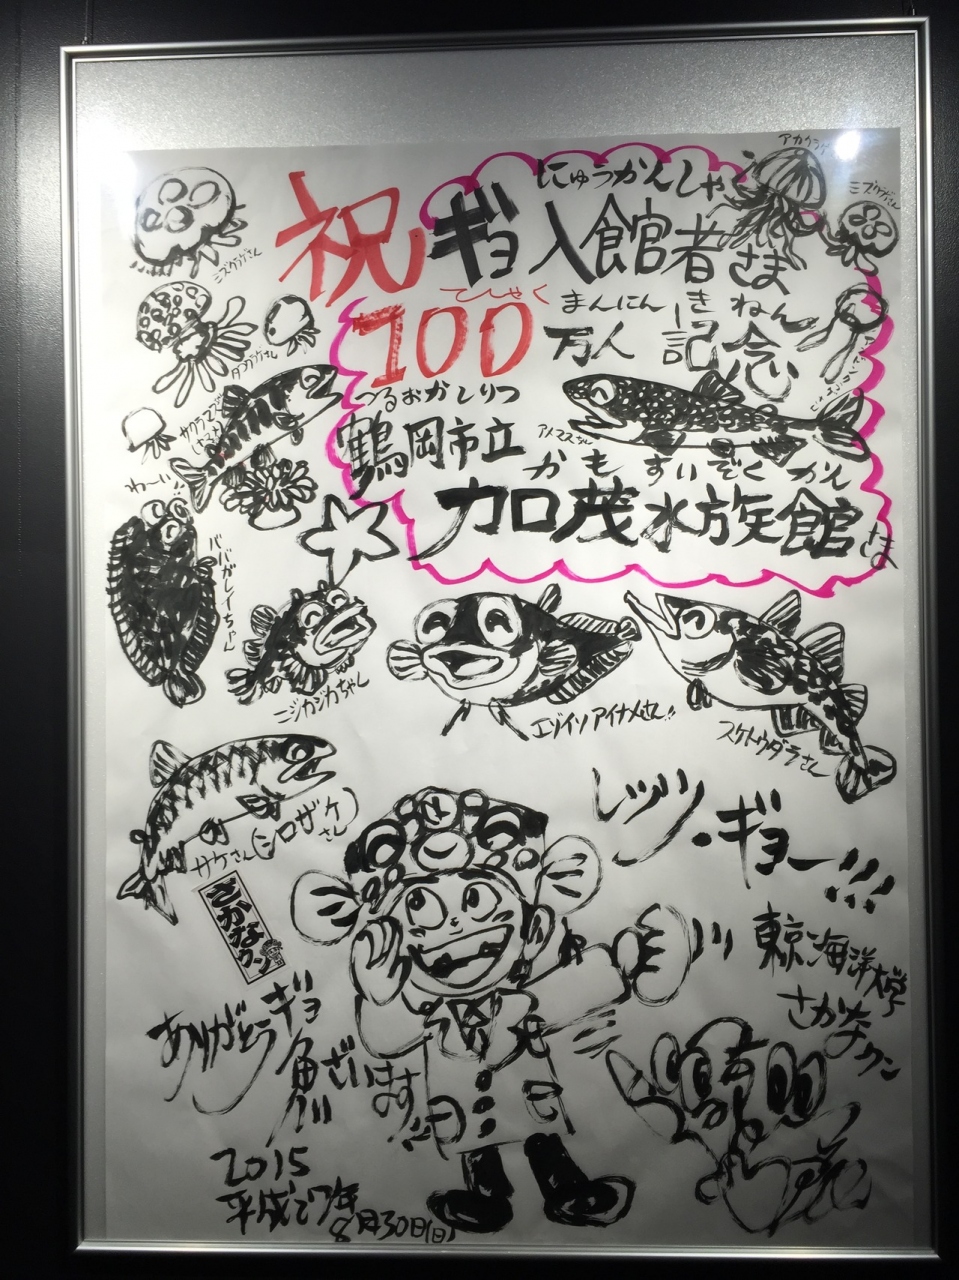 アカクラゲ
ミズクラゲさん
ミズクラゲさん
祝
にゅうかんしゃ
ギョ入館者さま
てひゃく
まんにん きねん
100万人 記念
タコクラゲさん
つるおかしりつ
鶴岡市立
アメマスちゃん
サクラマス
(ヤマメ)
かもすいぞくかん
加茂水族館さま
わ〜い!!
ババガレイちゃん
ニジカジカちゃん
エゾイソアイナメさん!!
スケトウダラさん
サケさん(シロザケさん)
さかなクン
レッツ・ギョー!!!
東京海洋大学
さかなクン
ありがとうギョ
魚ざいます!!
2015
平成27年
8月30日(日)